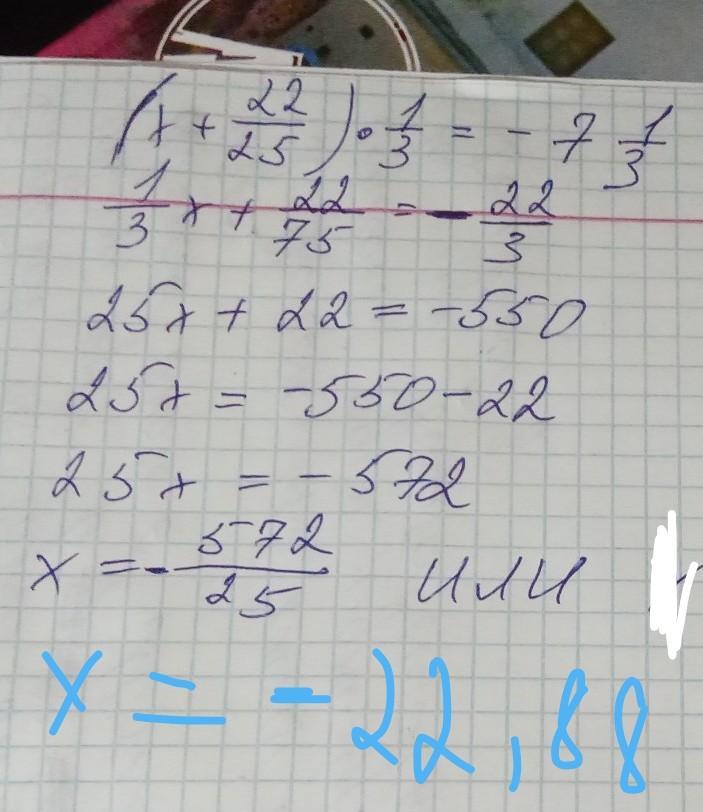 (x + 22/25) · 1/3 = - 7 1/3
1/3 x + 22/75 = - 22/3
25x + 22 = -550
25x = -550-22
25x = - 572
x = - 572/25 или
x = - 22,88